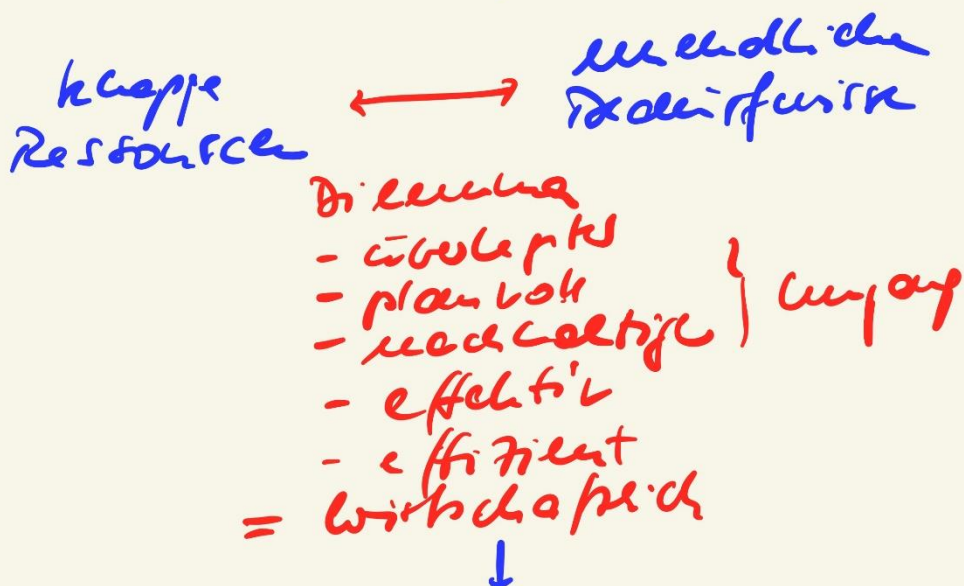 knappe
Ressourcen
unendliche
Bedürfnisse
Dilemma
- überlegter
- planvoll
- nachhaltiger
Umgang
- effektiv
- effizient
= wirtschaftlich